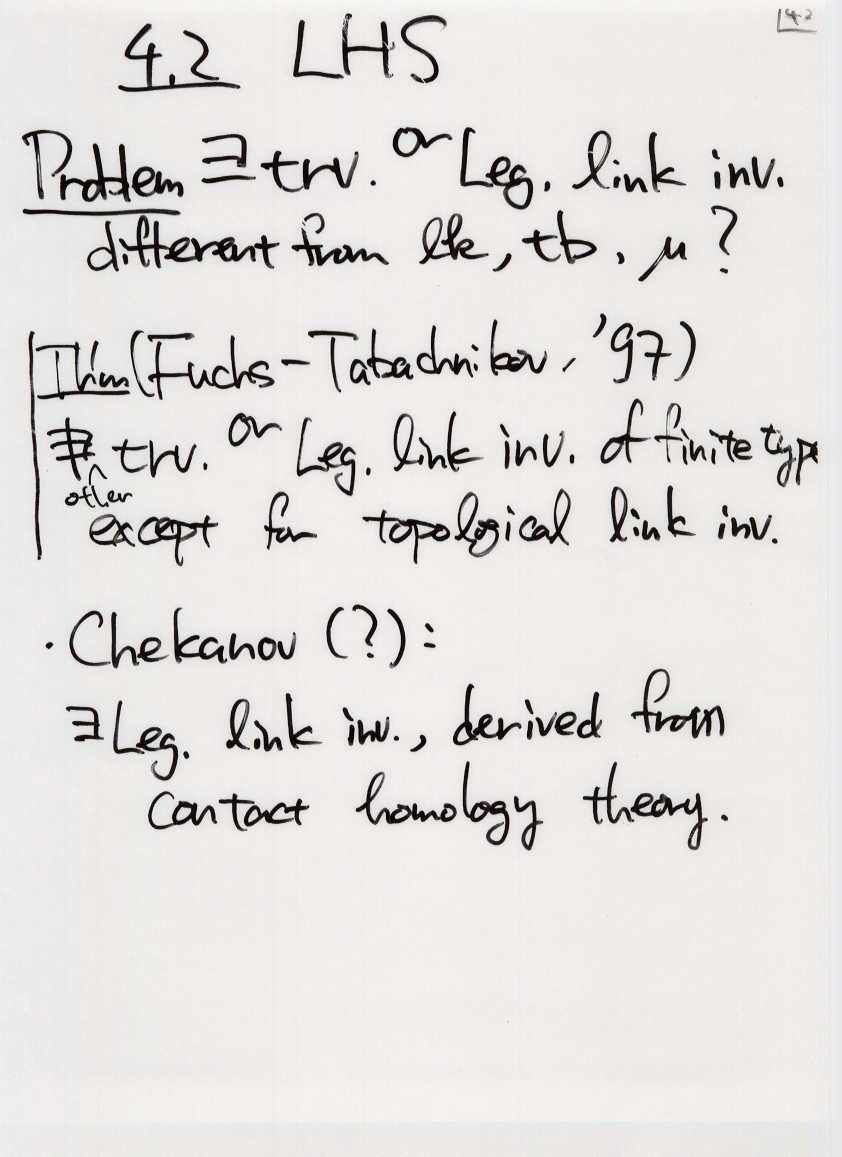 42
4.2 LHS
Problem ∃ trv. or Leg. link inv.
different from lk, tb, μ ?
Thm (Fuchs-Tabachnikov, '97)
∄ other trv. or Leg. link inv. of finite type
except for topological link inv.
· Chekanov (?):
∃ Leg. link inv., derived from
contact homology theory.